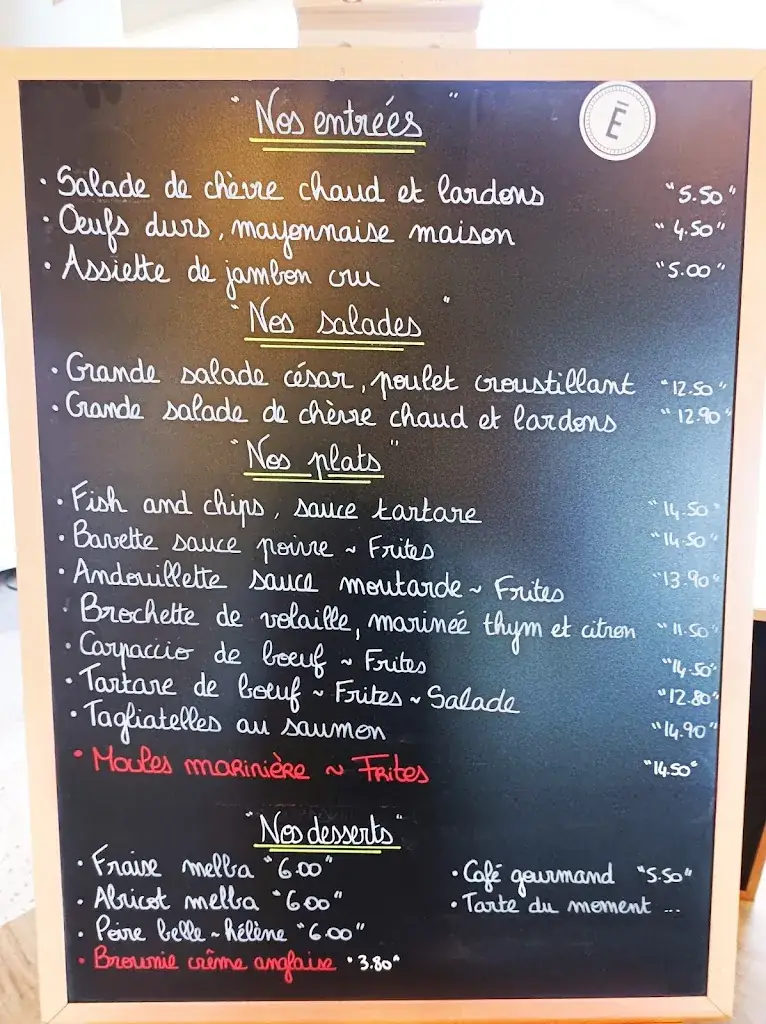 "Nos entrées"
Ē
• Salade de chèvre chaud et lardons "5.50"
• Oeufs durs, mayonnaise maison "4.50"
• Assiette de jambon cru "5.00"
"Nos salades"
• Grande salade césar, poulet croustillant "12.50"
• Grande salade de chèvre chaud et lardons "12.90"
"Nos plats"
• Fish and chips, sauce tartare "14.50"
• Bavette sauce poivre ~ Frites "14.50"
• Andouillette sauce moutarde ~ Frites "13.90"
• Brochette de volaille, marineé thym et citron "11.50"
• Carpaccio de boeuf ~ Frites "14.50"
• Tartare de boeuf ~ Frites ~ Salade "12.80"
• Tagliatelles au saumon "14.90"
• Moules marinière ~ Frites "14.50"
"Nos desserts"
• Fraise melba "6.00"
• Abricot melba "6.00"
• Poire belle ~ hélène "6.00"
• Brownie crême anglaise "3.80"
• Café gourmand "5.50"
• Tarte du moment ...